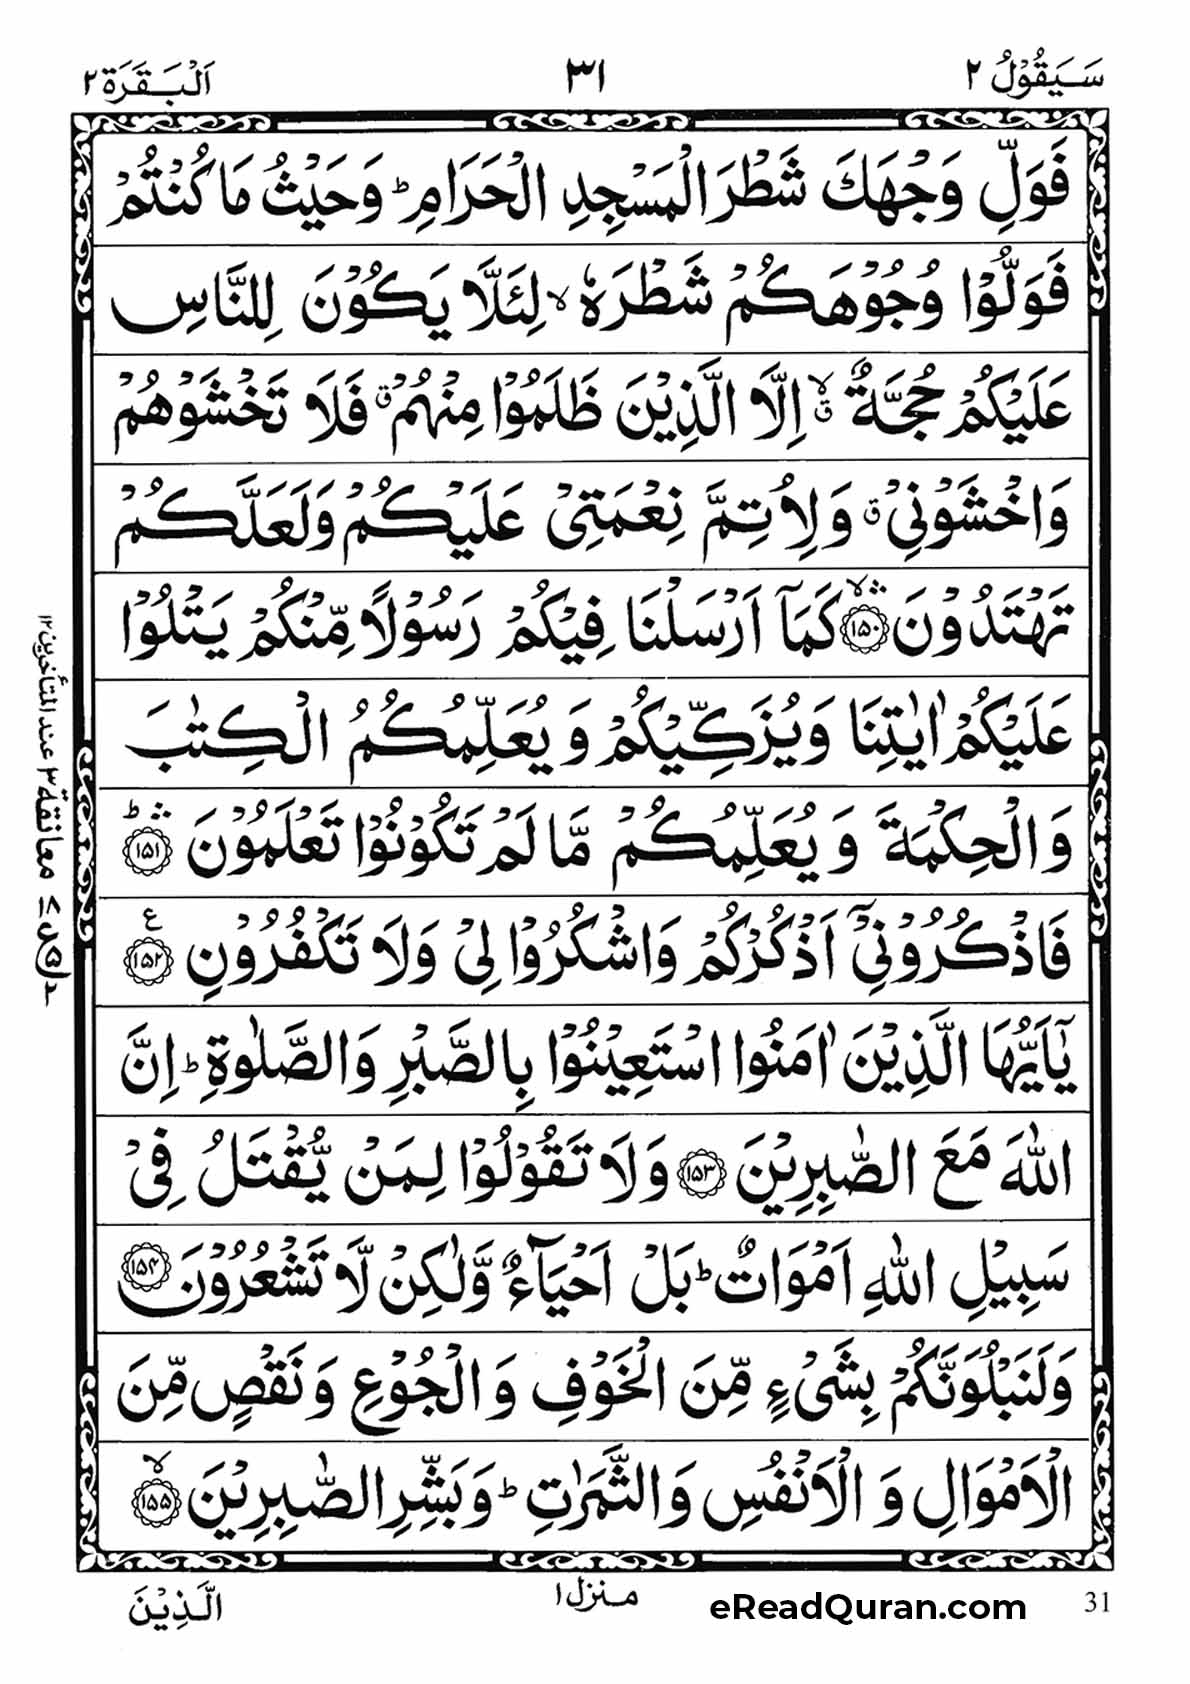 سَيَقُوْلُ ٢
٣١
اَلْبَقَرَة ٢
فَوَلِّ وَجْهَكَ شَطْرَ الْمَسْجِدِ الْحَرَامِ ؕ وَحَيْثُ مَا كُنْتُمْ
فَوَلُّوْا وُجُوْهَكُمْ شَطْرَهٗ ۙ لِئَلَّا يَكُوْنَ لِلنَّاسِ
عَلَيْكُمْ حُجَّةٌ ۙۗ اِلَّا الَّذِيْنَ ظَلَمُوْا مِنْهُمْ ۗ فَلَا تَخْشَوْهُمْ
وَاخْشَوْنِيْ ۗ وَلِاُتِمَّ نِعْمَتِيْ عَلَيْكُمْ وَلَعَلَّكُمْ
تَهْتَدُوْنَ ۛۙ ﴿۱۵۰﴾ كَمَاۤ اَرْسَلْنَا فِيْكُمْ رَسُوْلًا مِّنْكُمْ يَتْلُوْا
عَلَيْكُمْ اٰيٰتِنَا وَيُزَكِّيْكُمْ وَيُعَلِّمُكُمُ الْكِتٰبَ
وَالْحِكْمَةَ وَيُعَلِّمُكُمْ مَّا لَمْ تَكُوْنُوْا تَعْلَمُوْنَ ۛؕ ﴿۱۵۱﴾
فَاذْكُرُوْنِيْۤ اَذْكُرْكُمْ وَاشْكُرُوْا لِيْ وَلَا تَكْفُرُوْنِ ﴿۱۵۲﴾ ع
يٰۤاَيُّهَا الَّذِيْنَ اٰمَنُوا اسْتَعِيْنُوْا بِالصَّبْرِ وَالصَّلٰوةِ ؕ اِنَّ
اللّٰهَ مَعَ الصّٰبِرِيْنَ ﴿۱۵۳﴾ وَلَا تَقُوْلُوْا لِمَنْ يُّقْتَلُ فِيْ
سَبِيْلِ اللّٰهِ اَمْوَاتٌ ؕ بَلْ اَحْيَآءٌ وَّلٰكِنْ لَّا تَشْعُرُوْنَ ﴿۱۵۴﴾
وَلَنَبْلُوَنَّكُمْ بِشَيْءٍ مِّنَ الْخَوْفِ وَالْجُوْعِ وَنَقْصٍ مِّنَ
الْاَمْوَالِ وَالْاَنْفُسِ وَالثَّمَرٰتِ ؕ وَبَشِّرِ الصّٰبِرِيْنَ ۙ ﴿۱۵۵﴾
معانقة ٣ عند المتأخرين ١٢
31
eReadQuran.com
منزل ١
الَّذِيْنَ